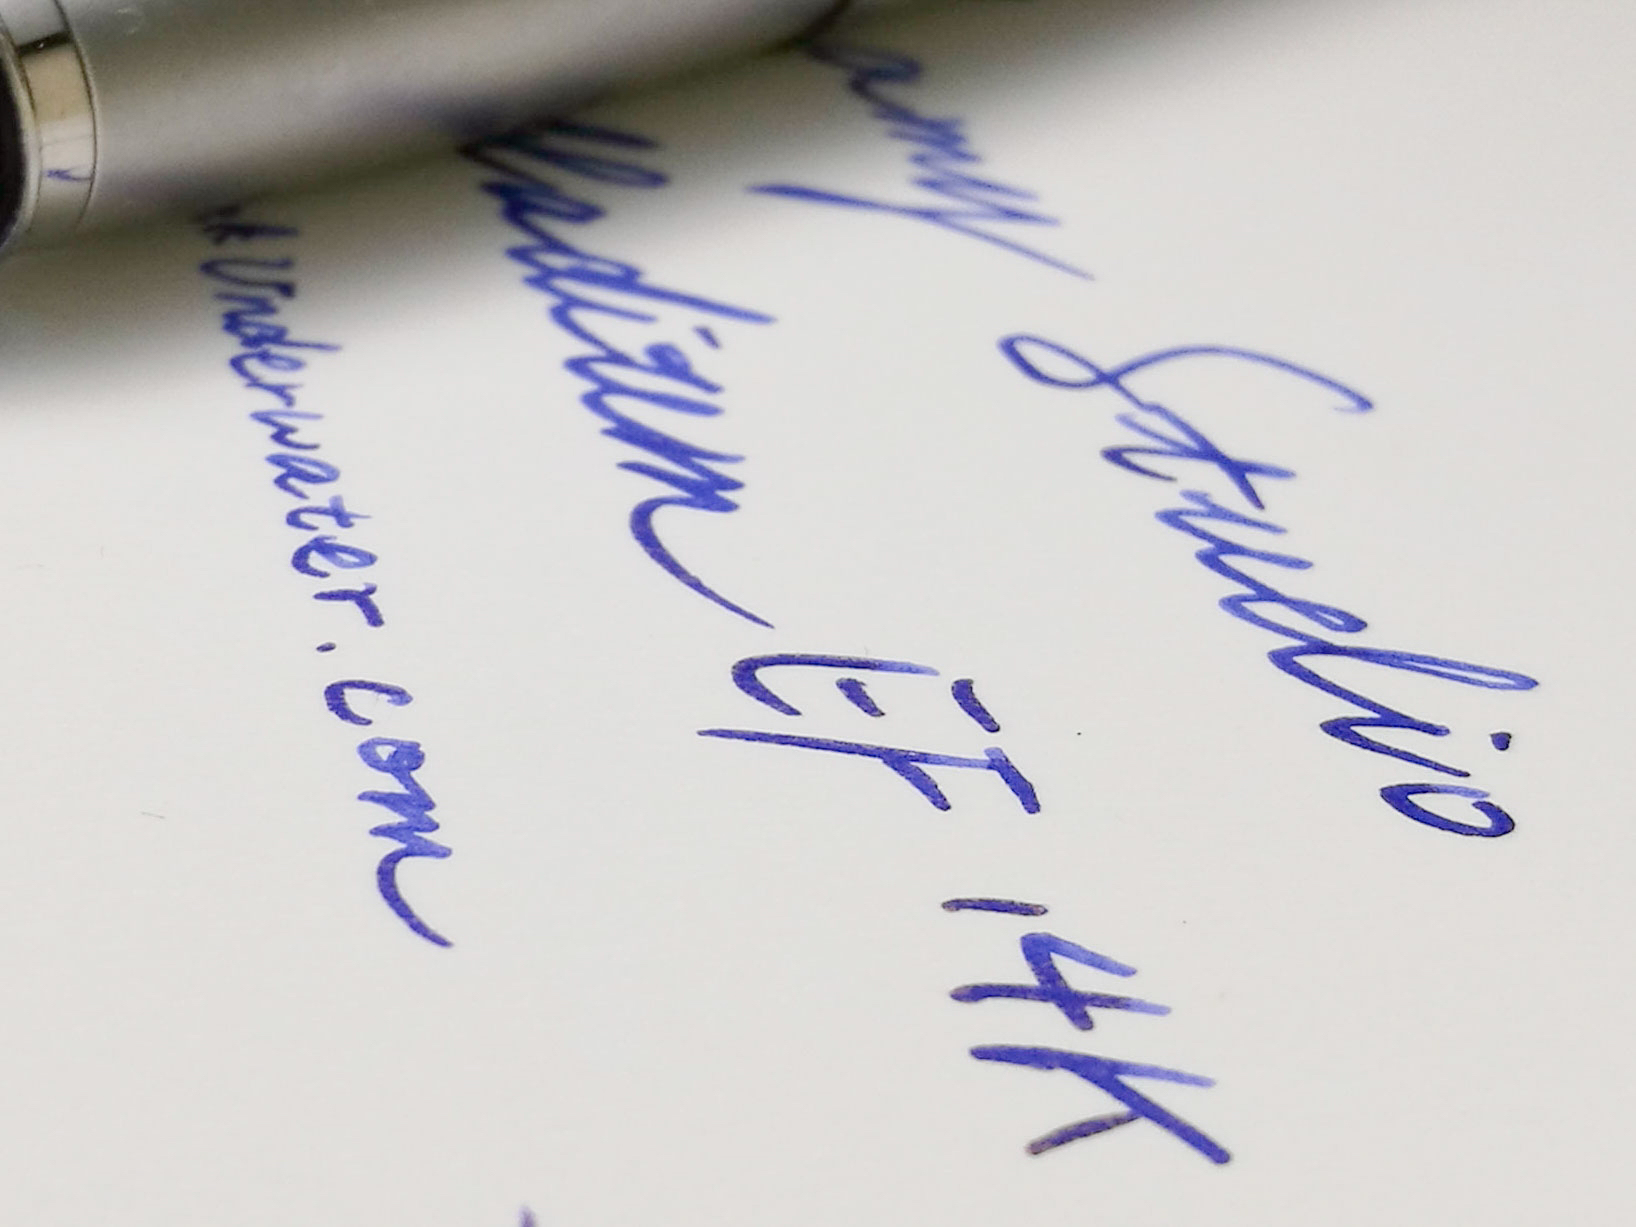 amy Studio
lladium EF 14K
k Underwater.com